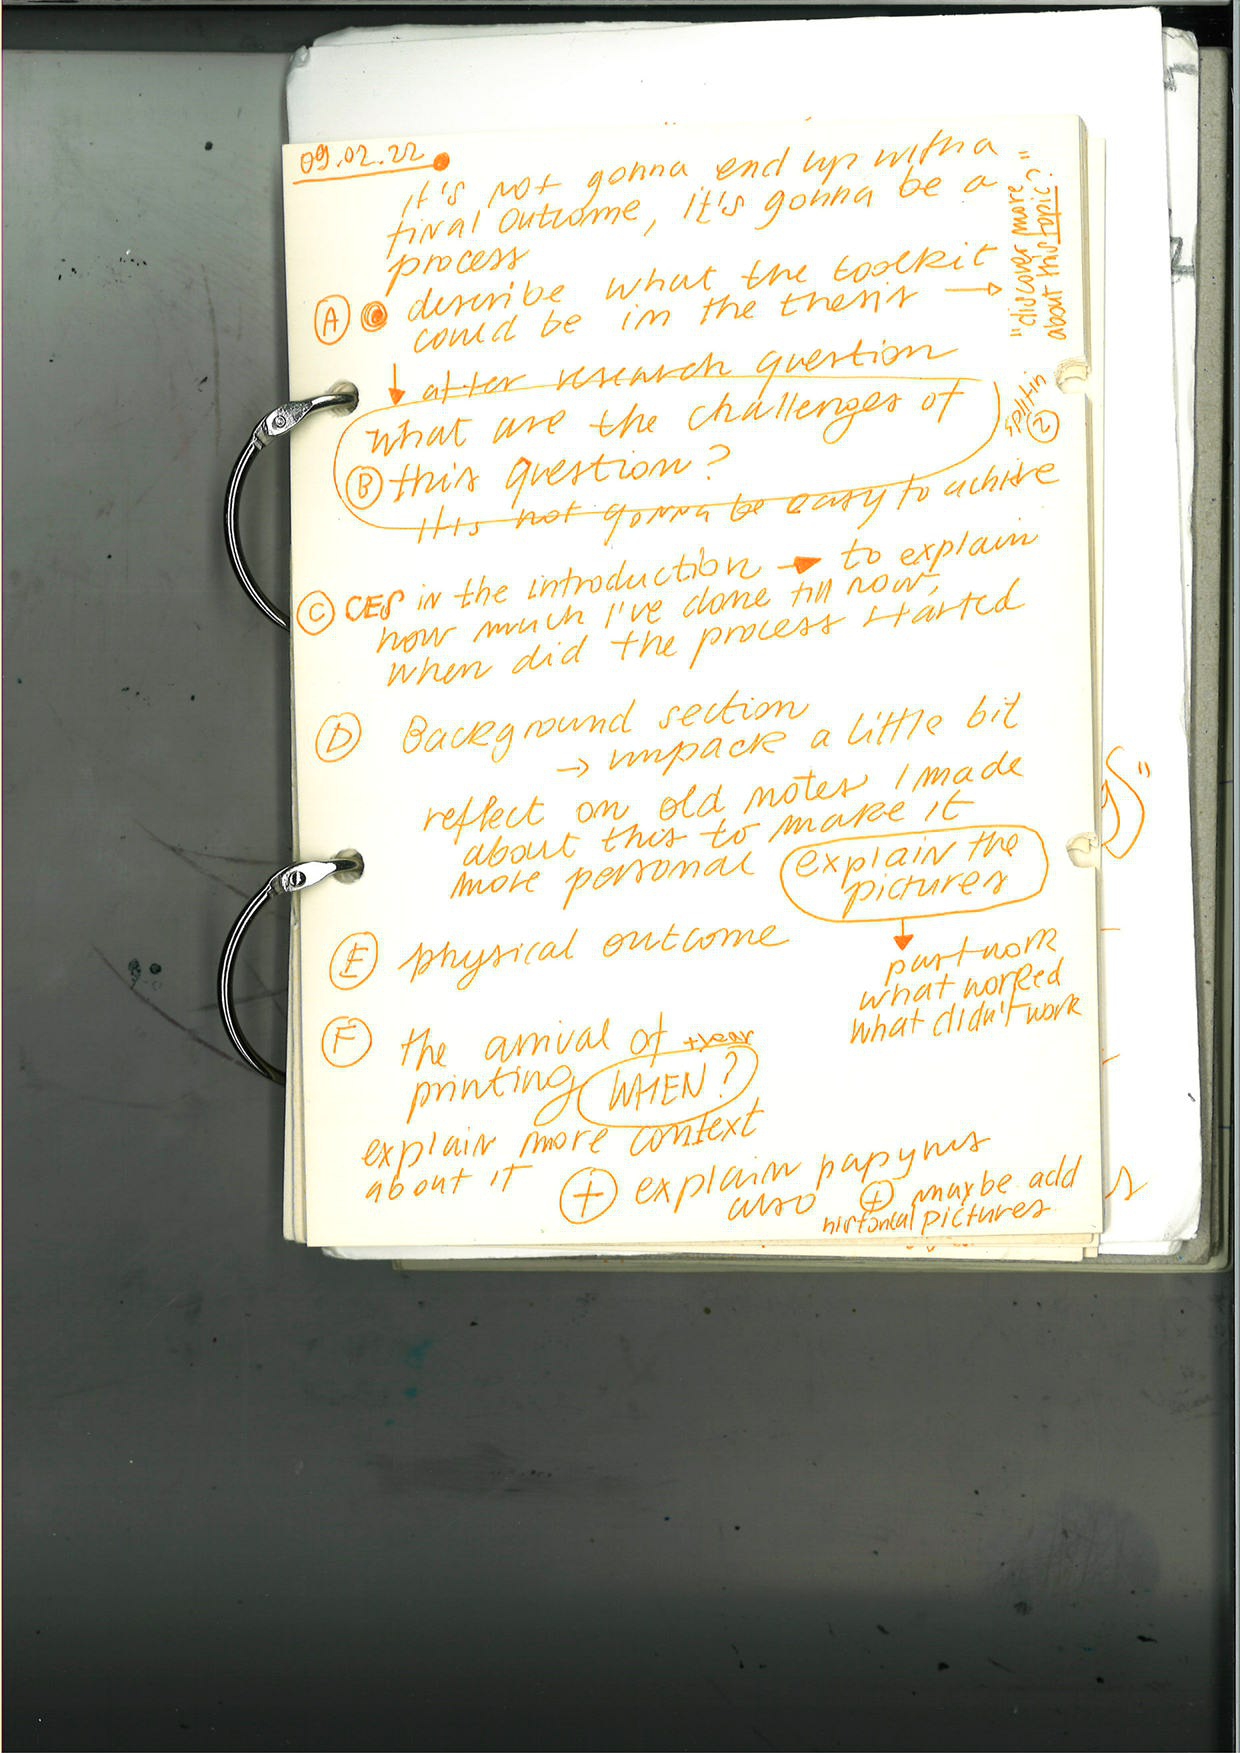 09.02.22
it's not gonna end up with a
final outcome, it's gonna be a
process
"discover more
about this topic?"
A describe what the toolkit →
could be in the thesis
after research question
what are the challenges of
B this question?
its not gonna be easy to achise
2
C CES in the introduction → to explain
how much I've done till now,
when did the process started
D Background section
→ unpack a little bit
reflect on old notes I made
about this to make it
more personal
explain the
pictures
past work
what worked
what didn't work
E physical outcome
F the arrival of
printing WHEN?
explain more context
about it
+ explain papyrus
also + maybe add
historical pictures